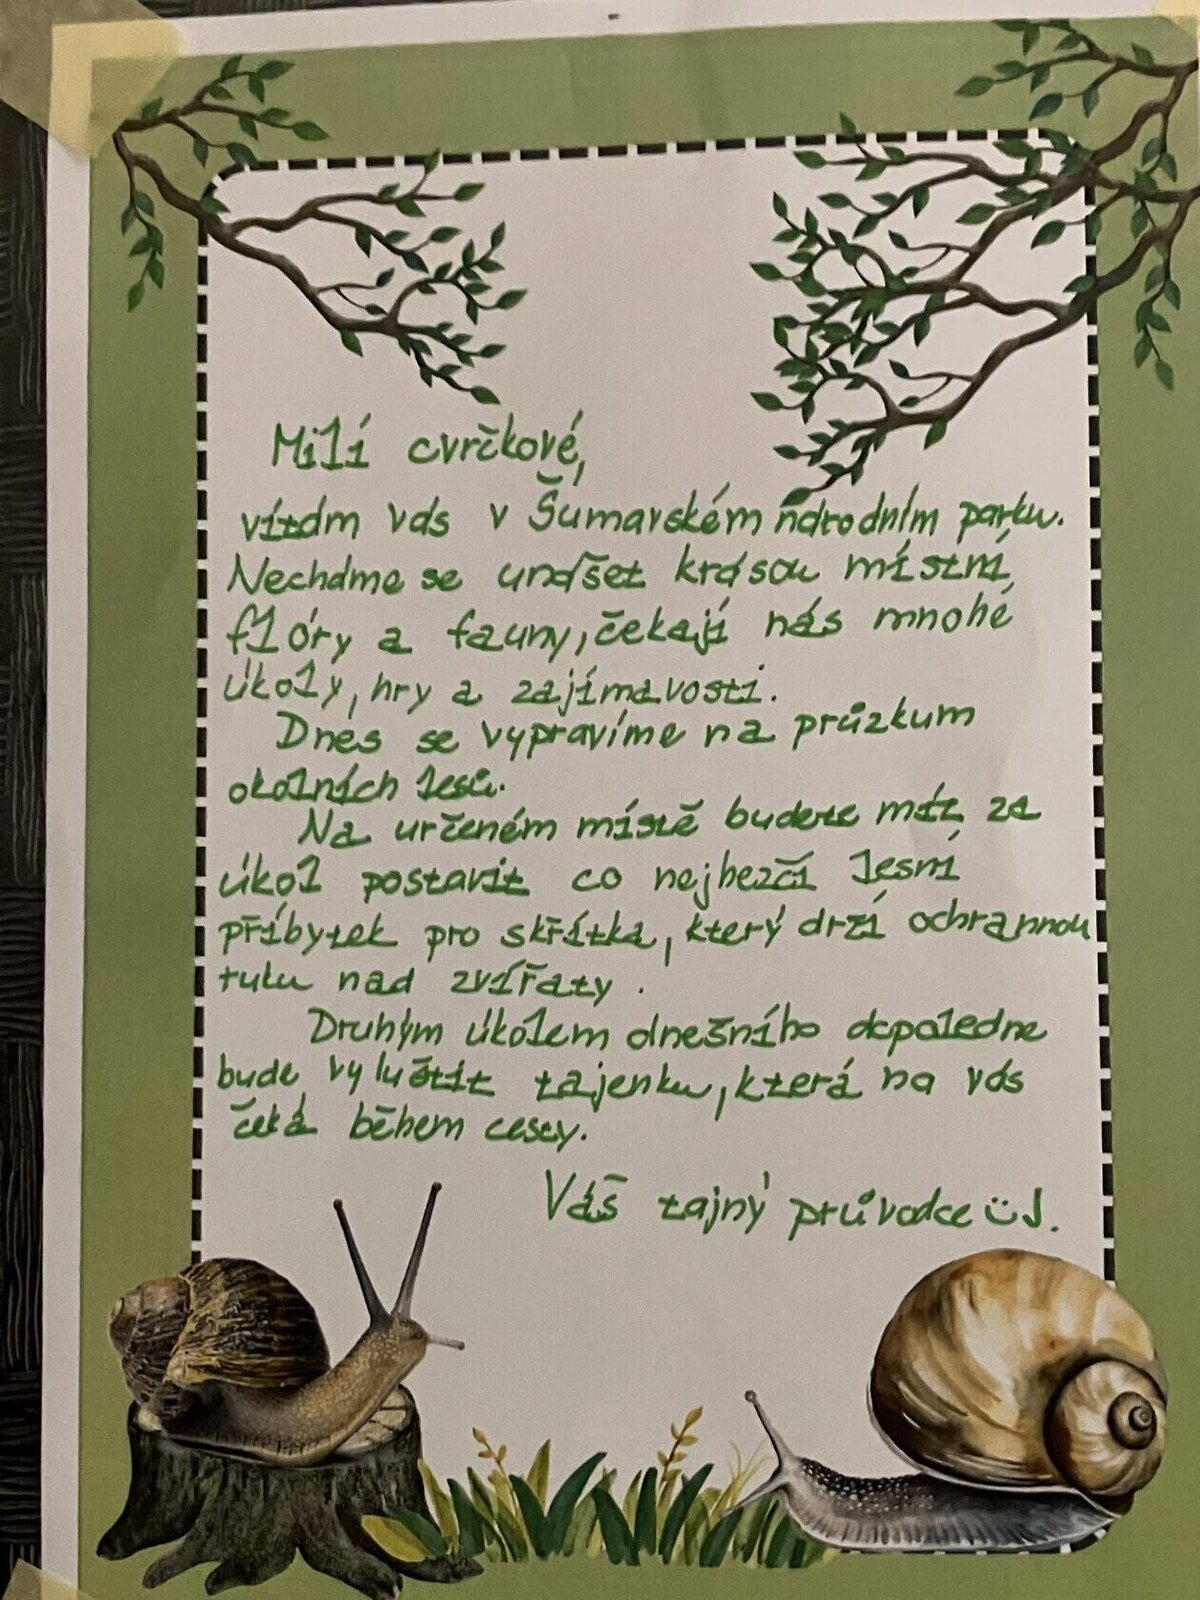 Milí cvrčkové,
vítám vás v Šumavském národním parku.
Necháme se unášet krásou místní
flóry a fauny, čekají nás mnohé
úkoly, hry a zajímavosti.
Dnes se vypravíme na průzkum
okolních lesů.
Na určeném místě budete mít za
úkol postavit co nejhezčí lesní
příbytek pro skřítka, který drží ochrannou
ruku nad zvířaty.
Druhým úkolem dnešního dopoledne
bude vyluštit tajenku, která na vás
čeká během cesty.
Váš tajný průvodce ü J.